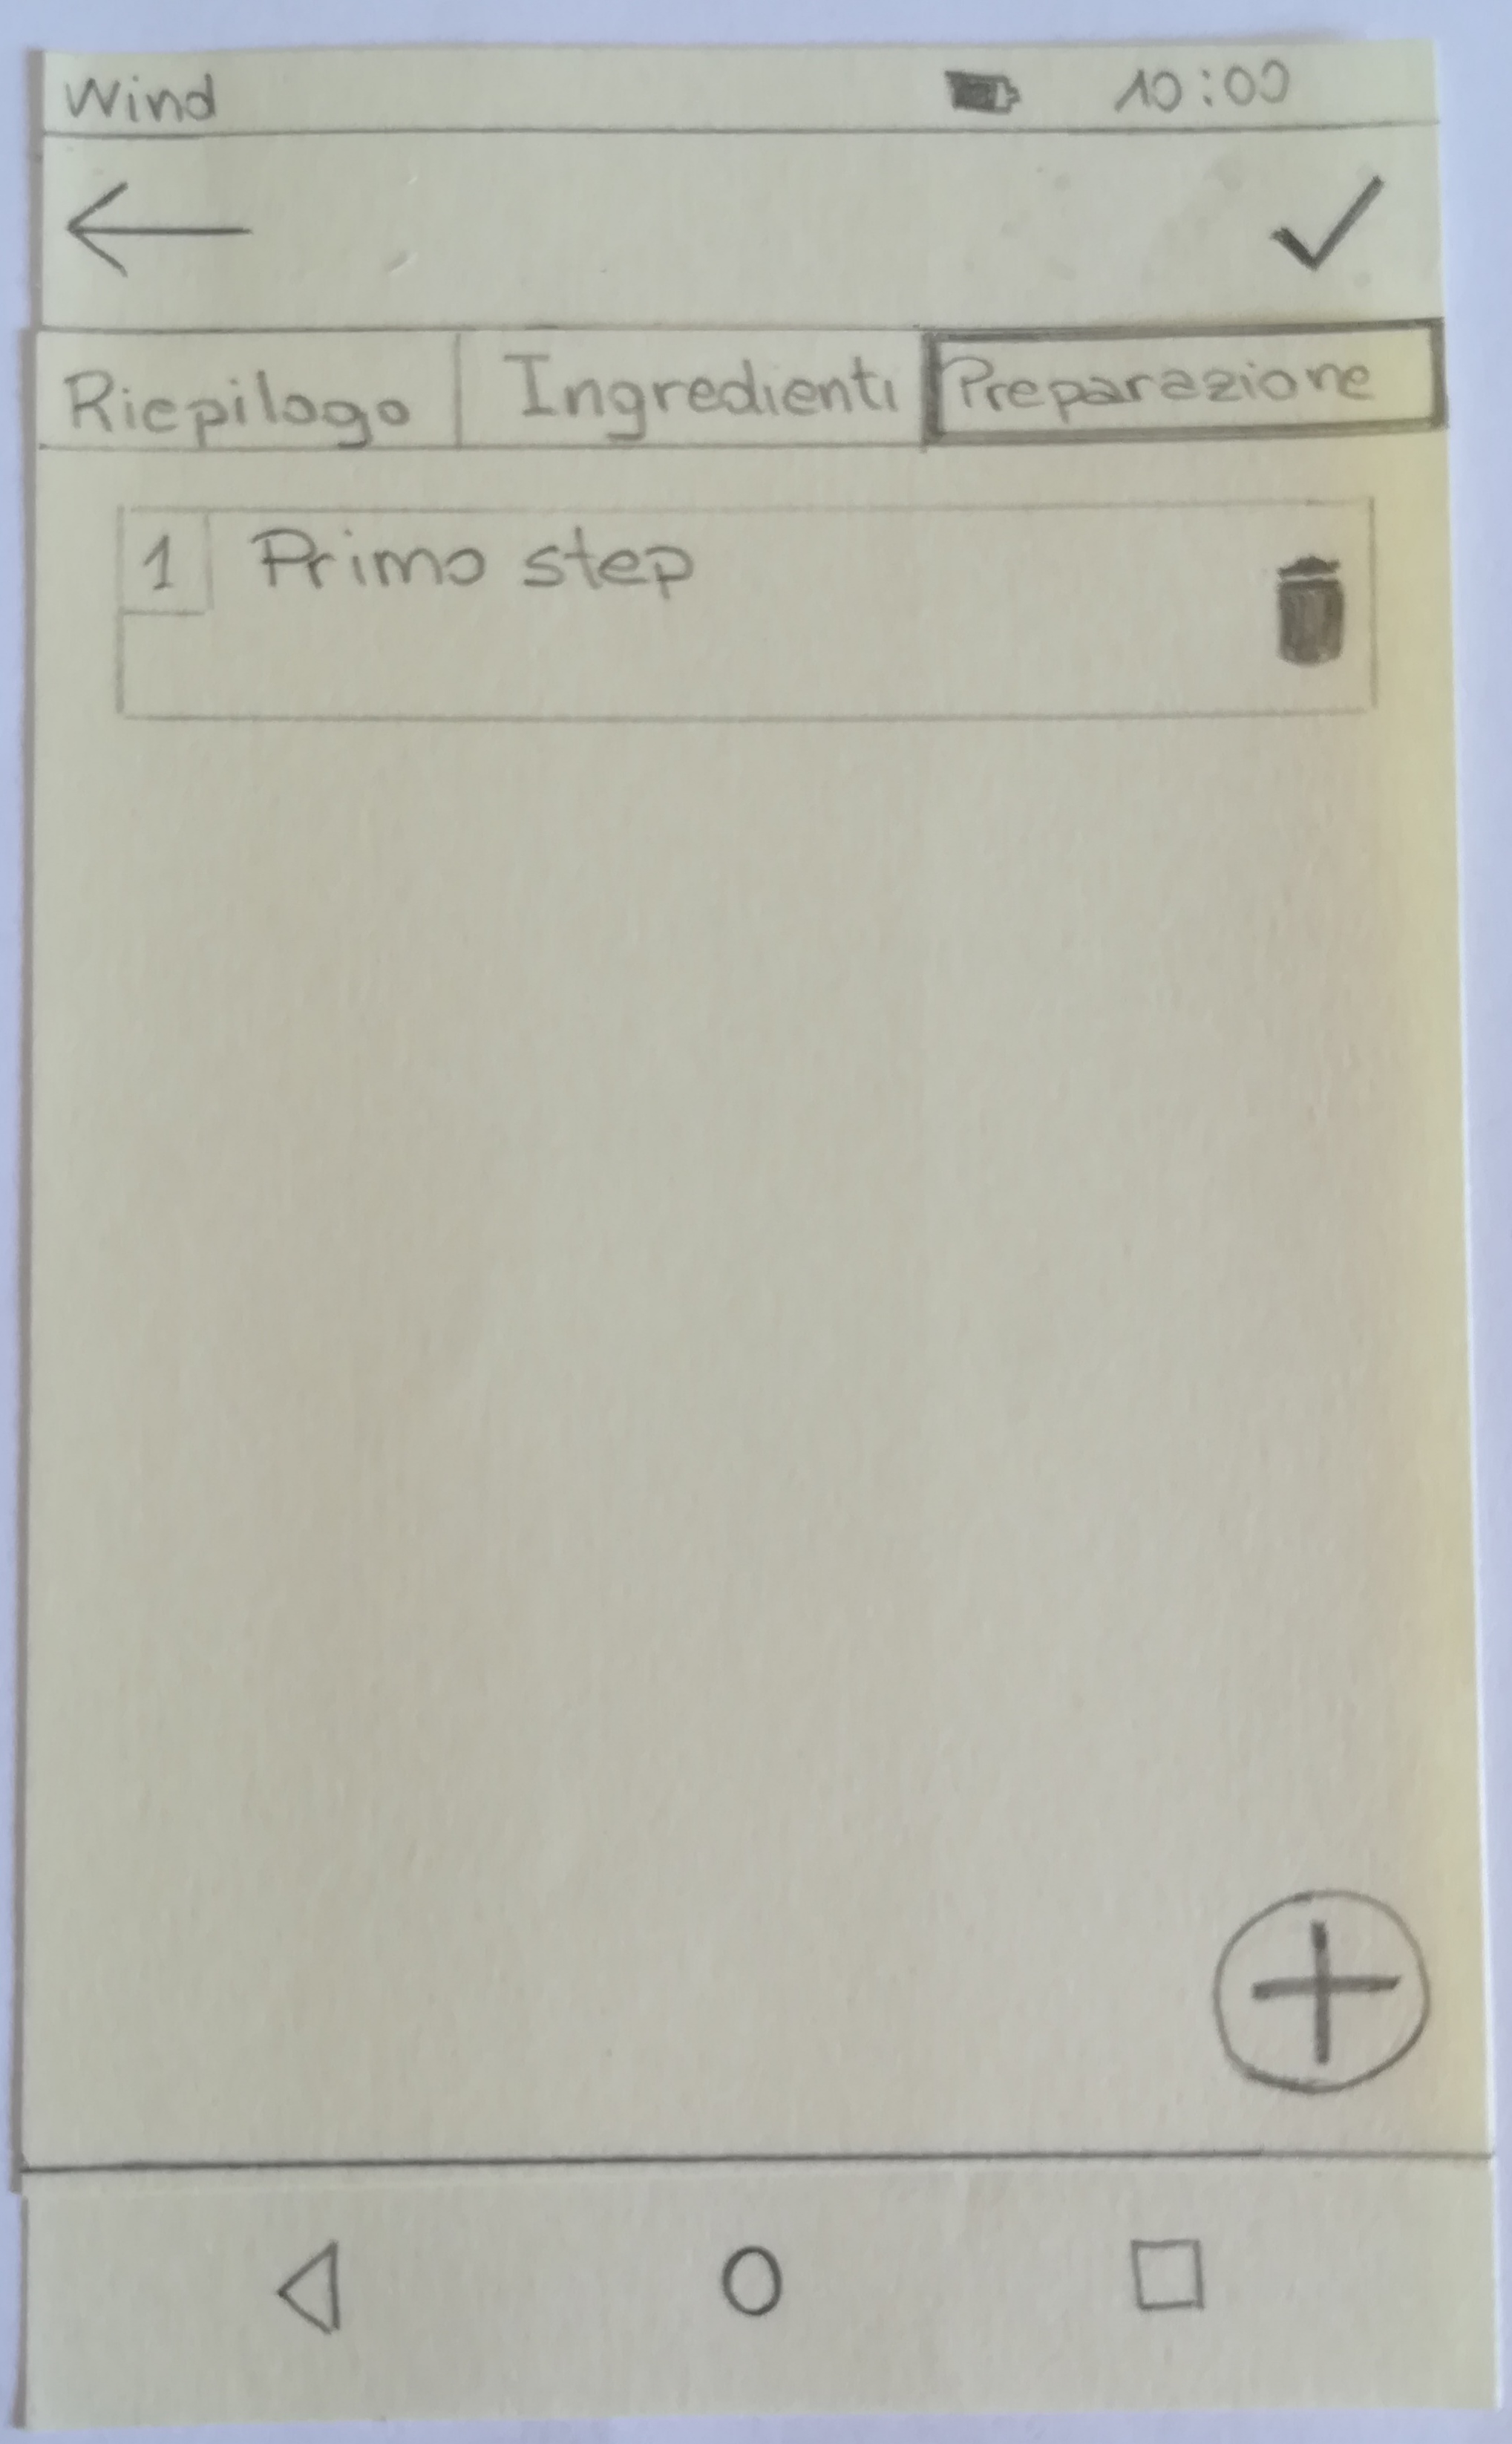 Wind 10:00
Riepilogo Ingredienti Preparazione
1 Primo step